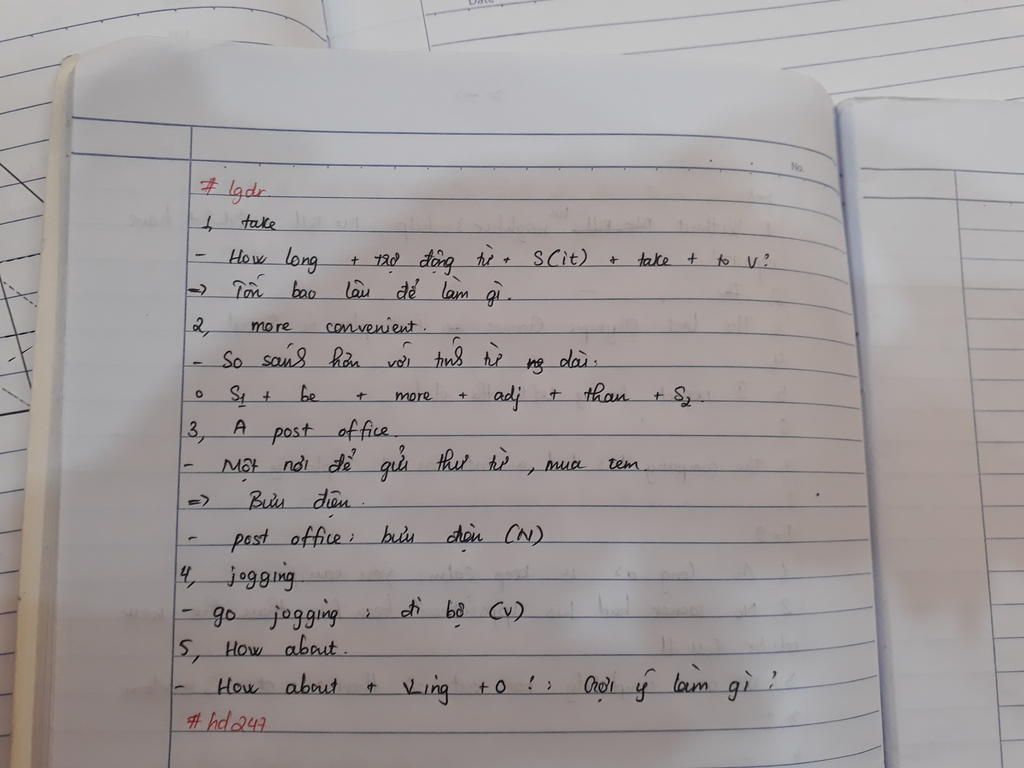 Date
No.
# lgdr
1, take
- How long + trợ động từ + S(it) + take + to V?
=> Tốn bao lâu để làm gì.
2, more convenient.
- So sánh hơn với tính từ ng dài:
o S1 + be + more + adj + than + S2.
3, A post office.
- Một nơi để gửi thư từ, mua tem.
=> Bưu điện.
- post office: bưu điện (N)
4, jogging.
- go jogging: đi bộ (V)
5, How about.
- How about + Ving + O?: Gợi ý làm gì?
# hd247